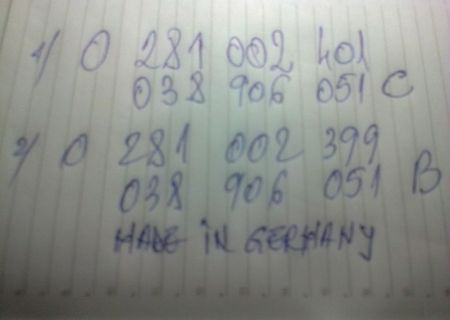 1/ 0 281 002 401
038 906 051 C
2/ 0 281 002 399
038 906 051 B
MADE IN GERMANY